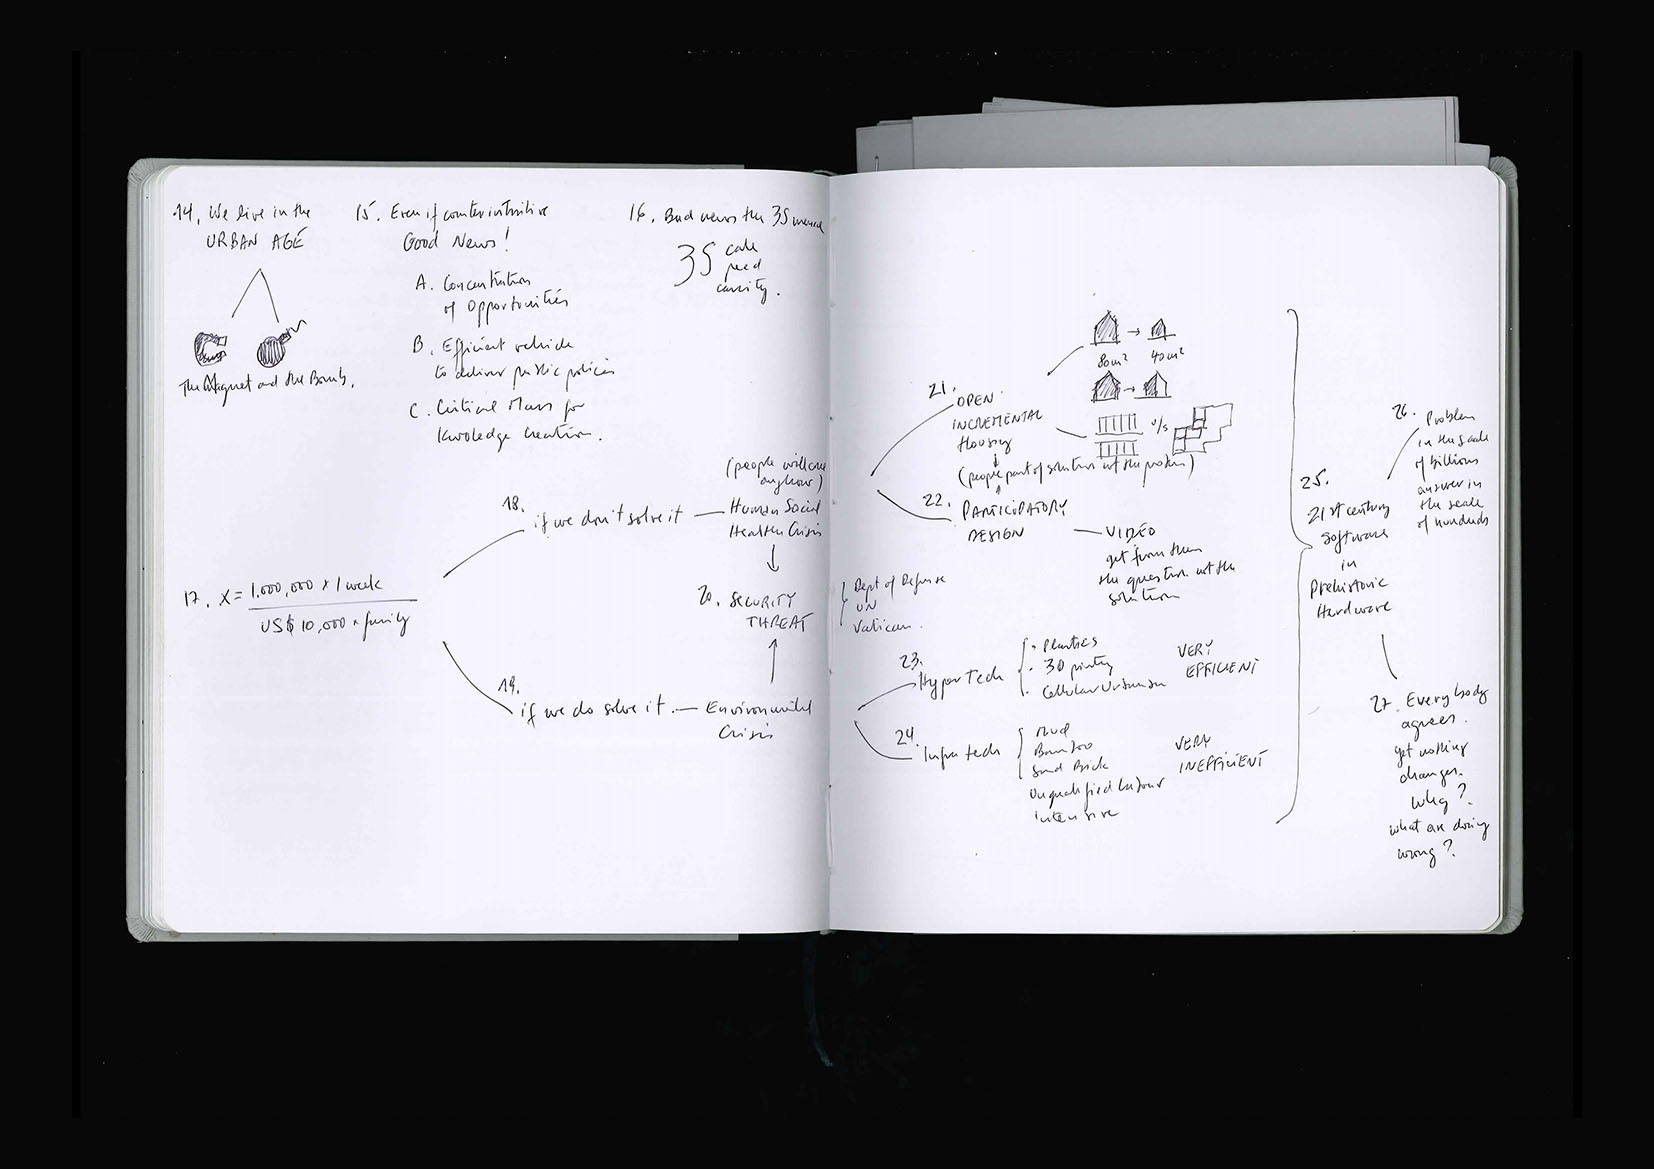 14. We live in the
URBAN AGE
The Magnet and the Bomb.
15. Even if counterintuitive
Good News!
A. Concentration
of Opportunities
B. Efficient vehicle
to deliver public policies
C. Critical Mass for
Knwoledge Creation.
16. Bad news the 3S menace
3S cale
peed
carcity.
17. X = 1.000,000 x 1 week
US$ 10,000 x family
18. if we don't solve it
(people will come
anyhow)
Human Social
Health Crisis
19. if we do solve it.
Environmental
Crisis
20. SECURITY
THREAT
Dept of Defense
UN
Vatican.
21. OPEN
INCREMENTAL
Housing
80m² 40m²
v/s
(people part of solution not the problem)
22. PARTICIPATORY
DESIGN
VIDEO
get from them
the question not the
solution
23. Hyper Tech
Plastics
3D printing
Cellular Urbanism
VERY
EFFICIENT
24. Infra tech
Mud
Bamboo
Sand Brick
Unqualified labour
intensive
VERY
INEFFICIENT
25.
21st century
Software
in
Prehistoric
Hardware
26. Problem
in the scale
of billions
answer in
the scale
of hundreds
27. Everybody
agrees.
yet nothing
changes.
Why?
what are doing
wrong?